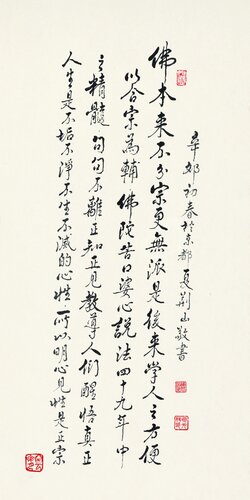 佛本来不分宗更無派是後来學人之方便
以合宗為輔佛陀苦口婆心說法四十九年中
之精髓句句不離正知正見教導人們醒悟真正
人生是不垢不淨不生不滅的心性所以明心見性是正宗
辛卯初春於京都夏荆山敬書